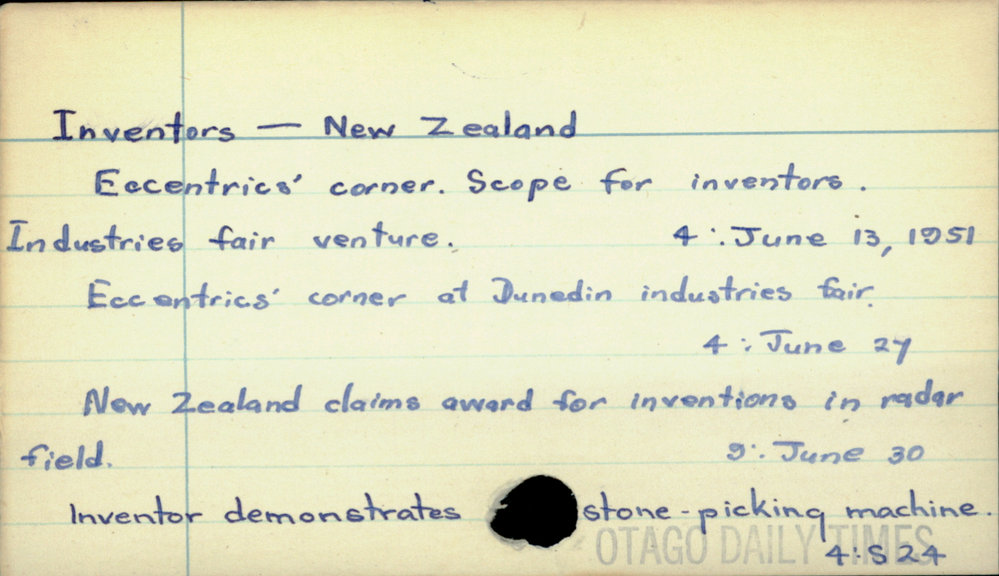 Inventors — New Zealand
Eccentrics' corner. Scope for inventors.
Industries fair venture. 4:. June 13, 1951
Eccentrics' corner at Dunedin industries fair.
4:. June 27
New Zealand claims award for inventions in radar
field. 9:. June 30
Inventor demonstrates stone-picking machine.
OTAGO DAILY TIMES
4:S 24